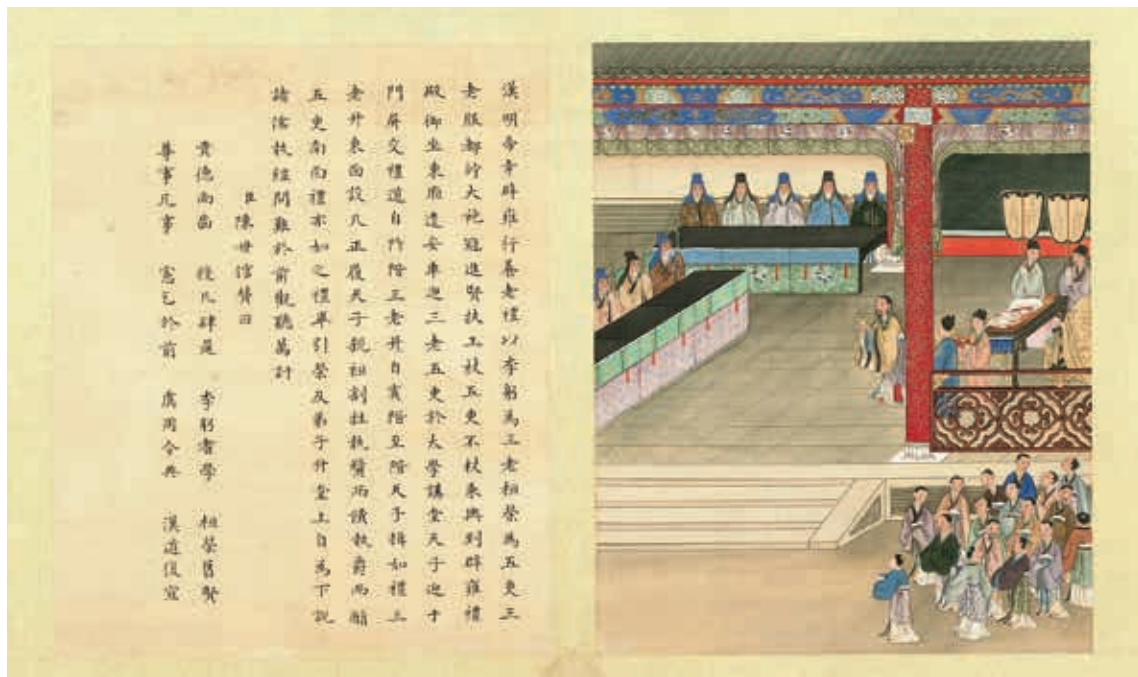 漢明帝幸辟雍行養老禮以李躬為三老桓榮為五更三
老服都紵大袍冠進賢扶玉杖五更不杖乘輿到辟雍禮
殿御坐東廂遣安車迎三老五更於太學講堂天子迎于
門屏交禮道自阼階三老升自賓階至階天子揖如禮三
老升東面設几正履天子親袒割牲執醬而饋執爵而酳
五更南面禮亦如之禮畢引榮及弟子升堂上自為下說
諸儒執經問難於前觀聽萬計
臣陳世倌贊曰
貴德尚齒 授几肆筵 李躬耆學 桓榮舊賢
尊事兄事 憲乞於前 虞周令典 漢道復宣